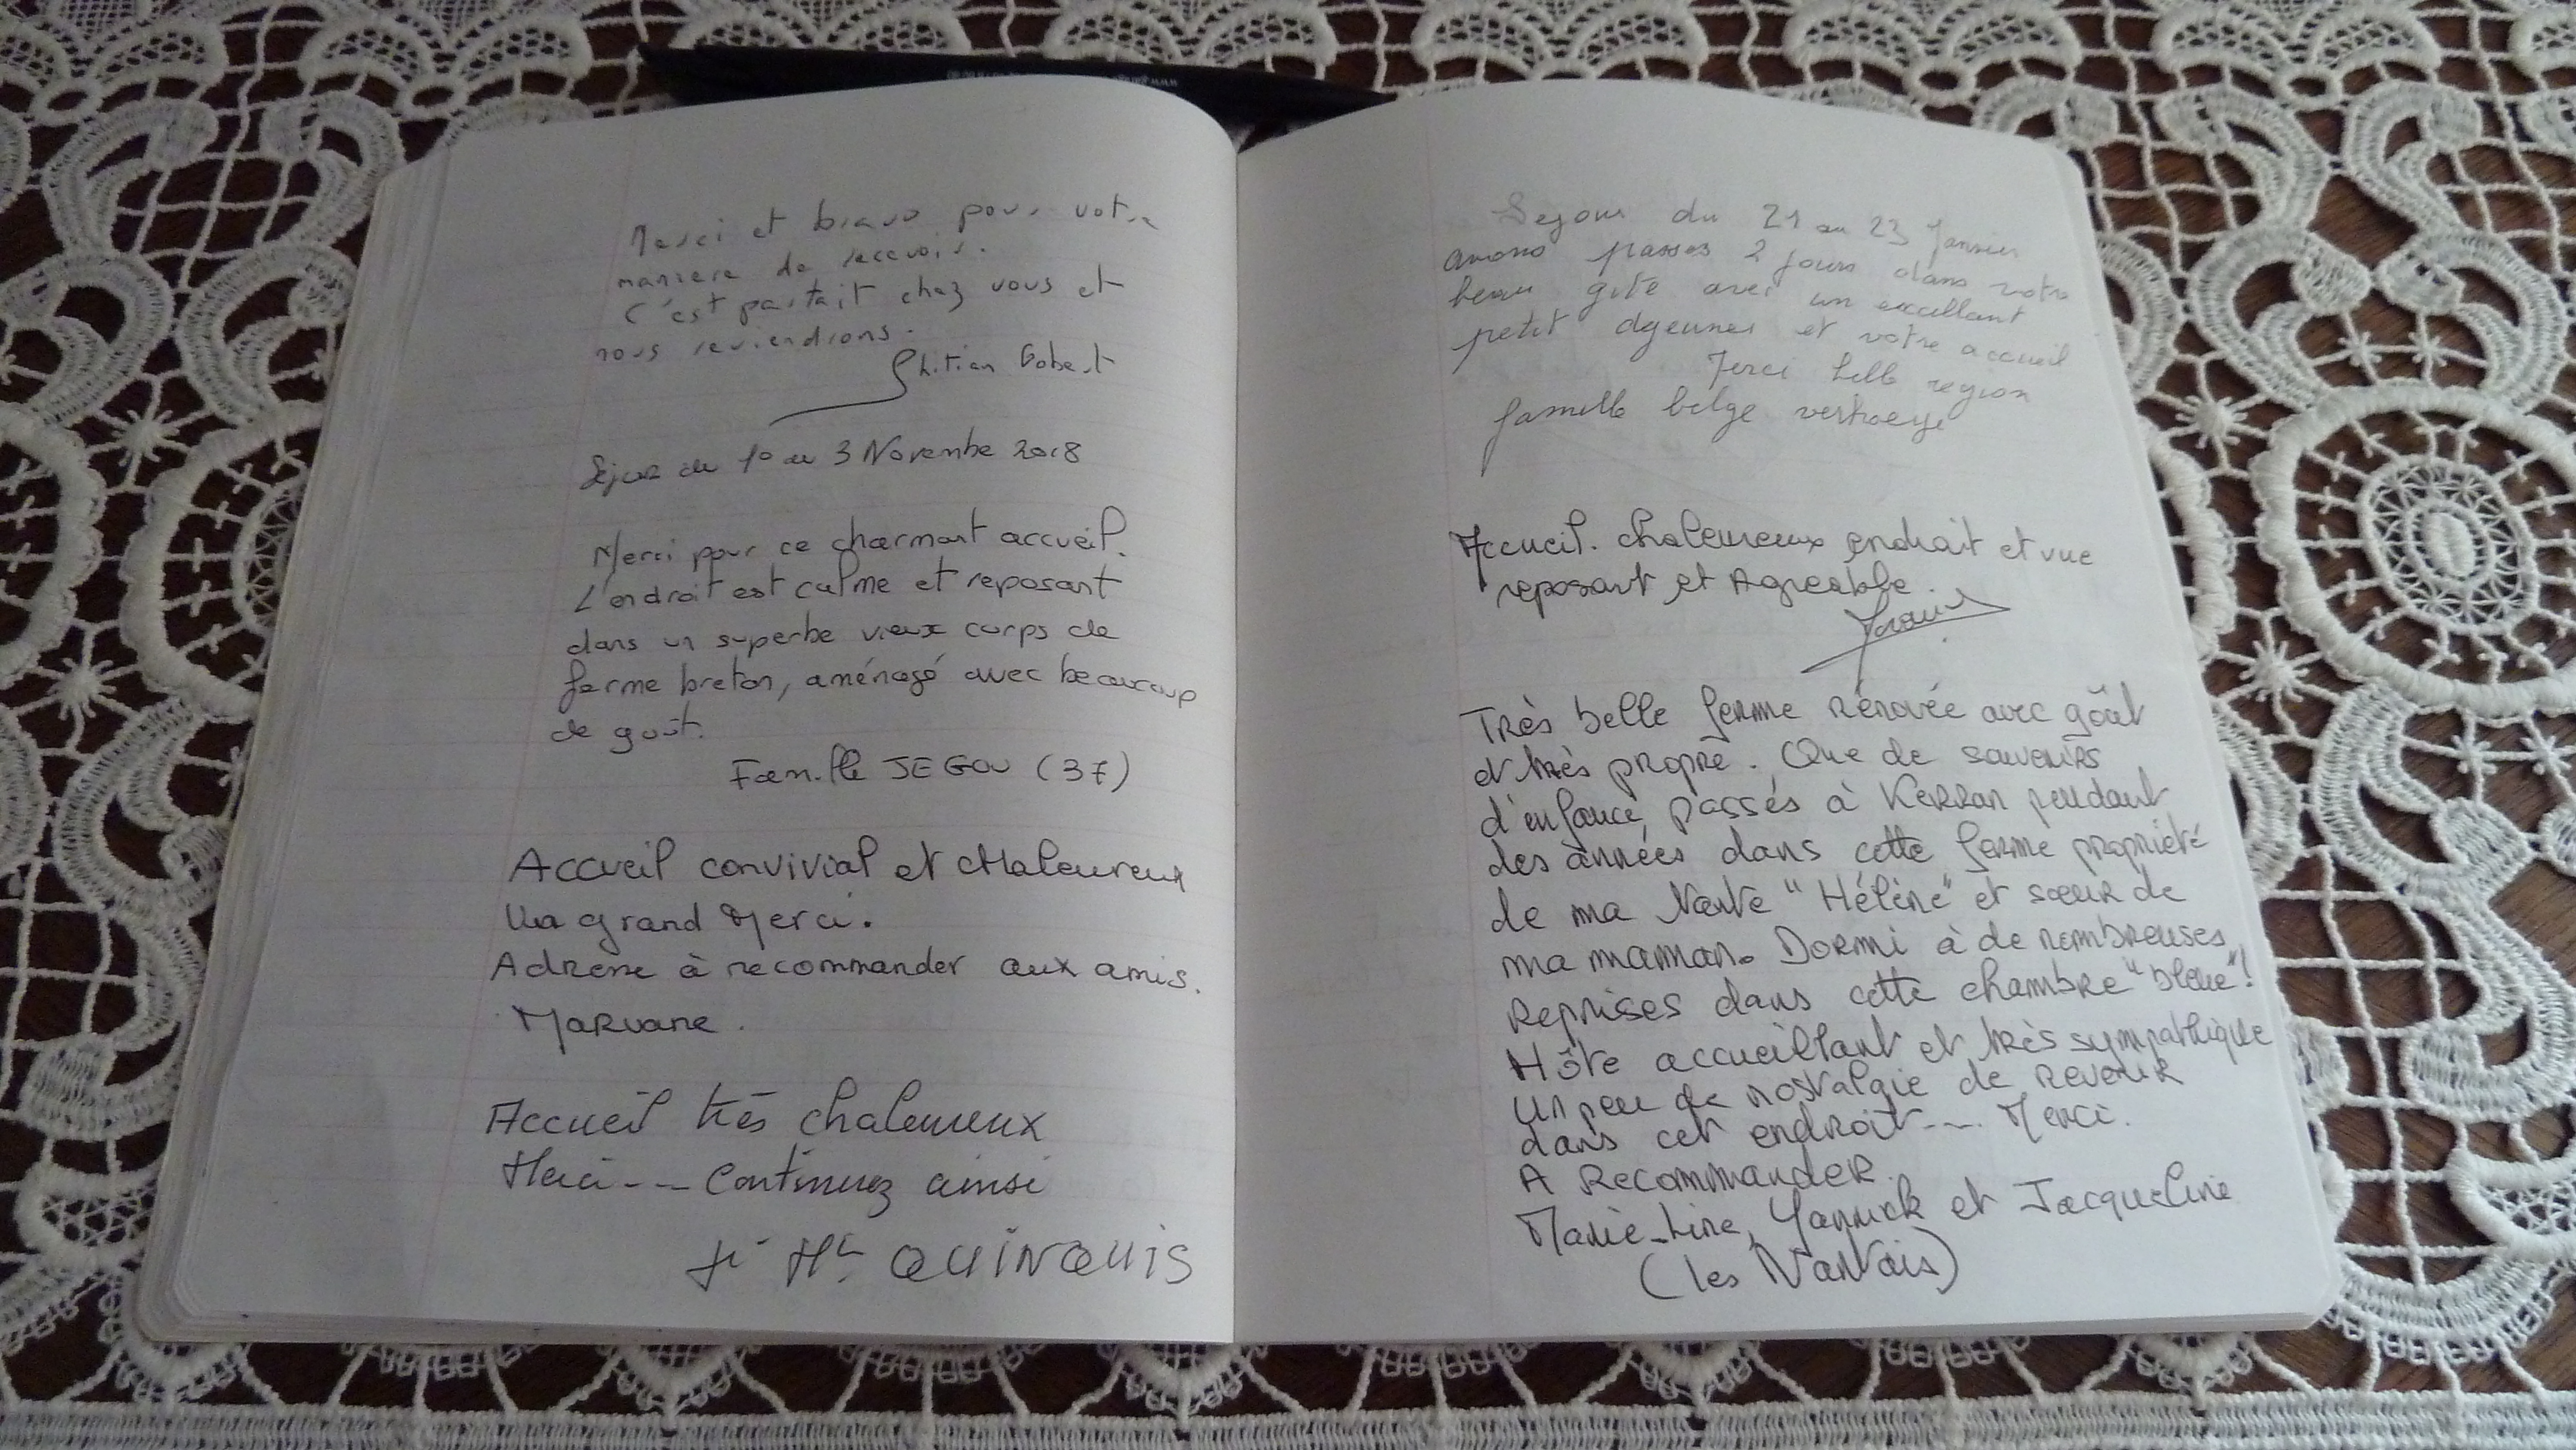 Merci et bravo pour votre
maniere de recevoir.
C'est parfait chez vous et
nous reviendrons.
Gobert
Séjour du 1° au 3 Novembre 2018
Merci pour ce charmant accueil.
L'endroit est calme et reposant
dans un superbe vieux corps de
ferme breton, aménagé avec beaucoup
de goût.
Famille JEGOU (37)
Accueil convivial et chaleureux
Un grand Merci.
Adresse à recommander aux amis.
Accueil très chaleureux
Merci--- Continuez ainsi
QUINQUIS
Sejour du 21 au 23 Janvier
avons passes 2 jours dans votre
beau gite avec un excellant
petit dejeuner et votre accueil
Merci belle region
famille belge
Accueil. chaleureux endroit et vue
reposant et Agreable
Très belle ferme rénovée avec goût
et très propre. Que de souvenirs
d'enfance, passés à Kerran pendant
des années dans cette ferme propriété
de ma Tante "Hélène" et sœur de
ma maman. Dormi à de nombreuses
reprises dans cette chambre "bleue"!
Hôte accueillant et très sympathique
Un peu de nostalgie de revenir
dans cet endroit---. Merci.
A Recommander.
Marie-Line, Yannick et Jacqueline
(les Nantais)